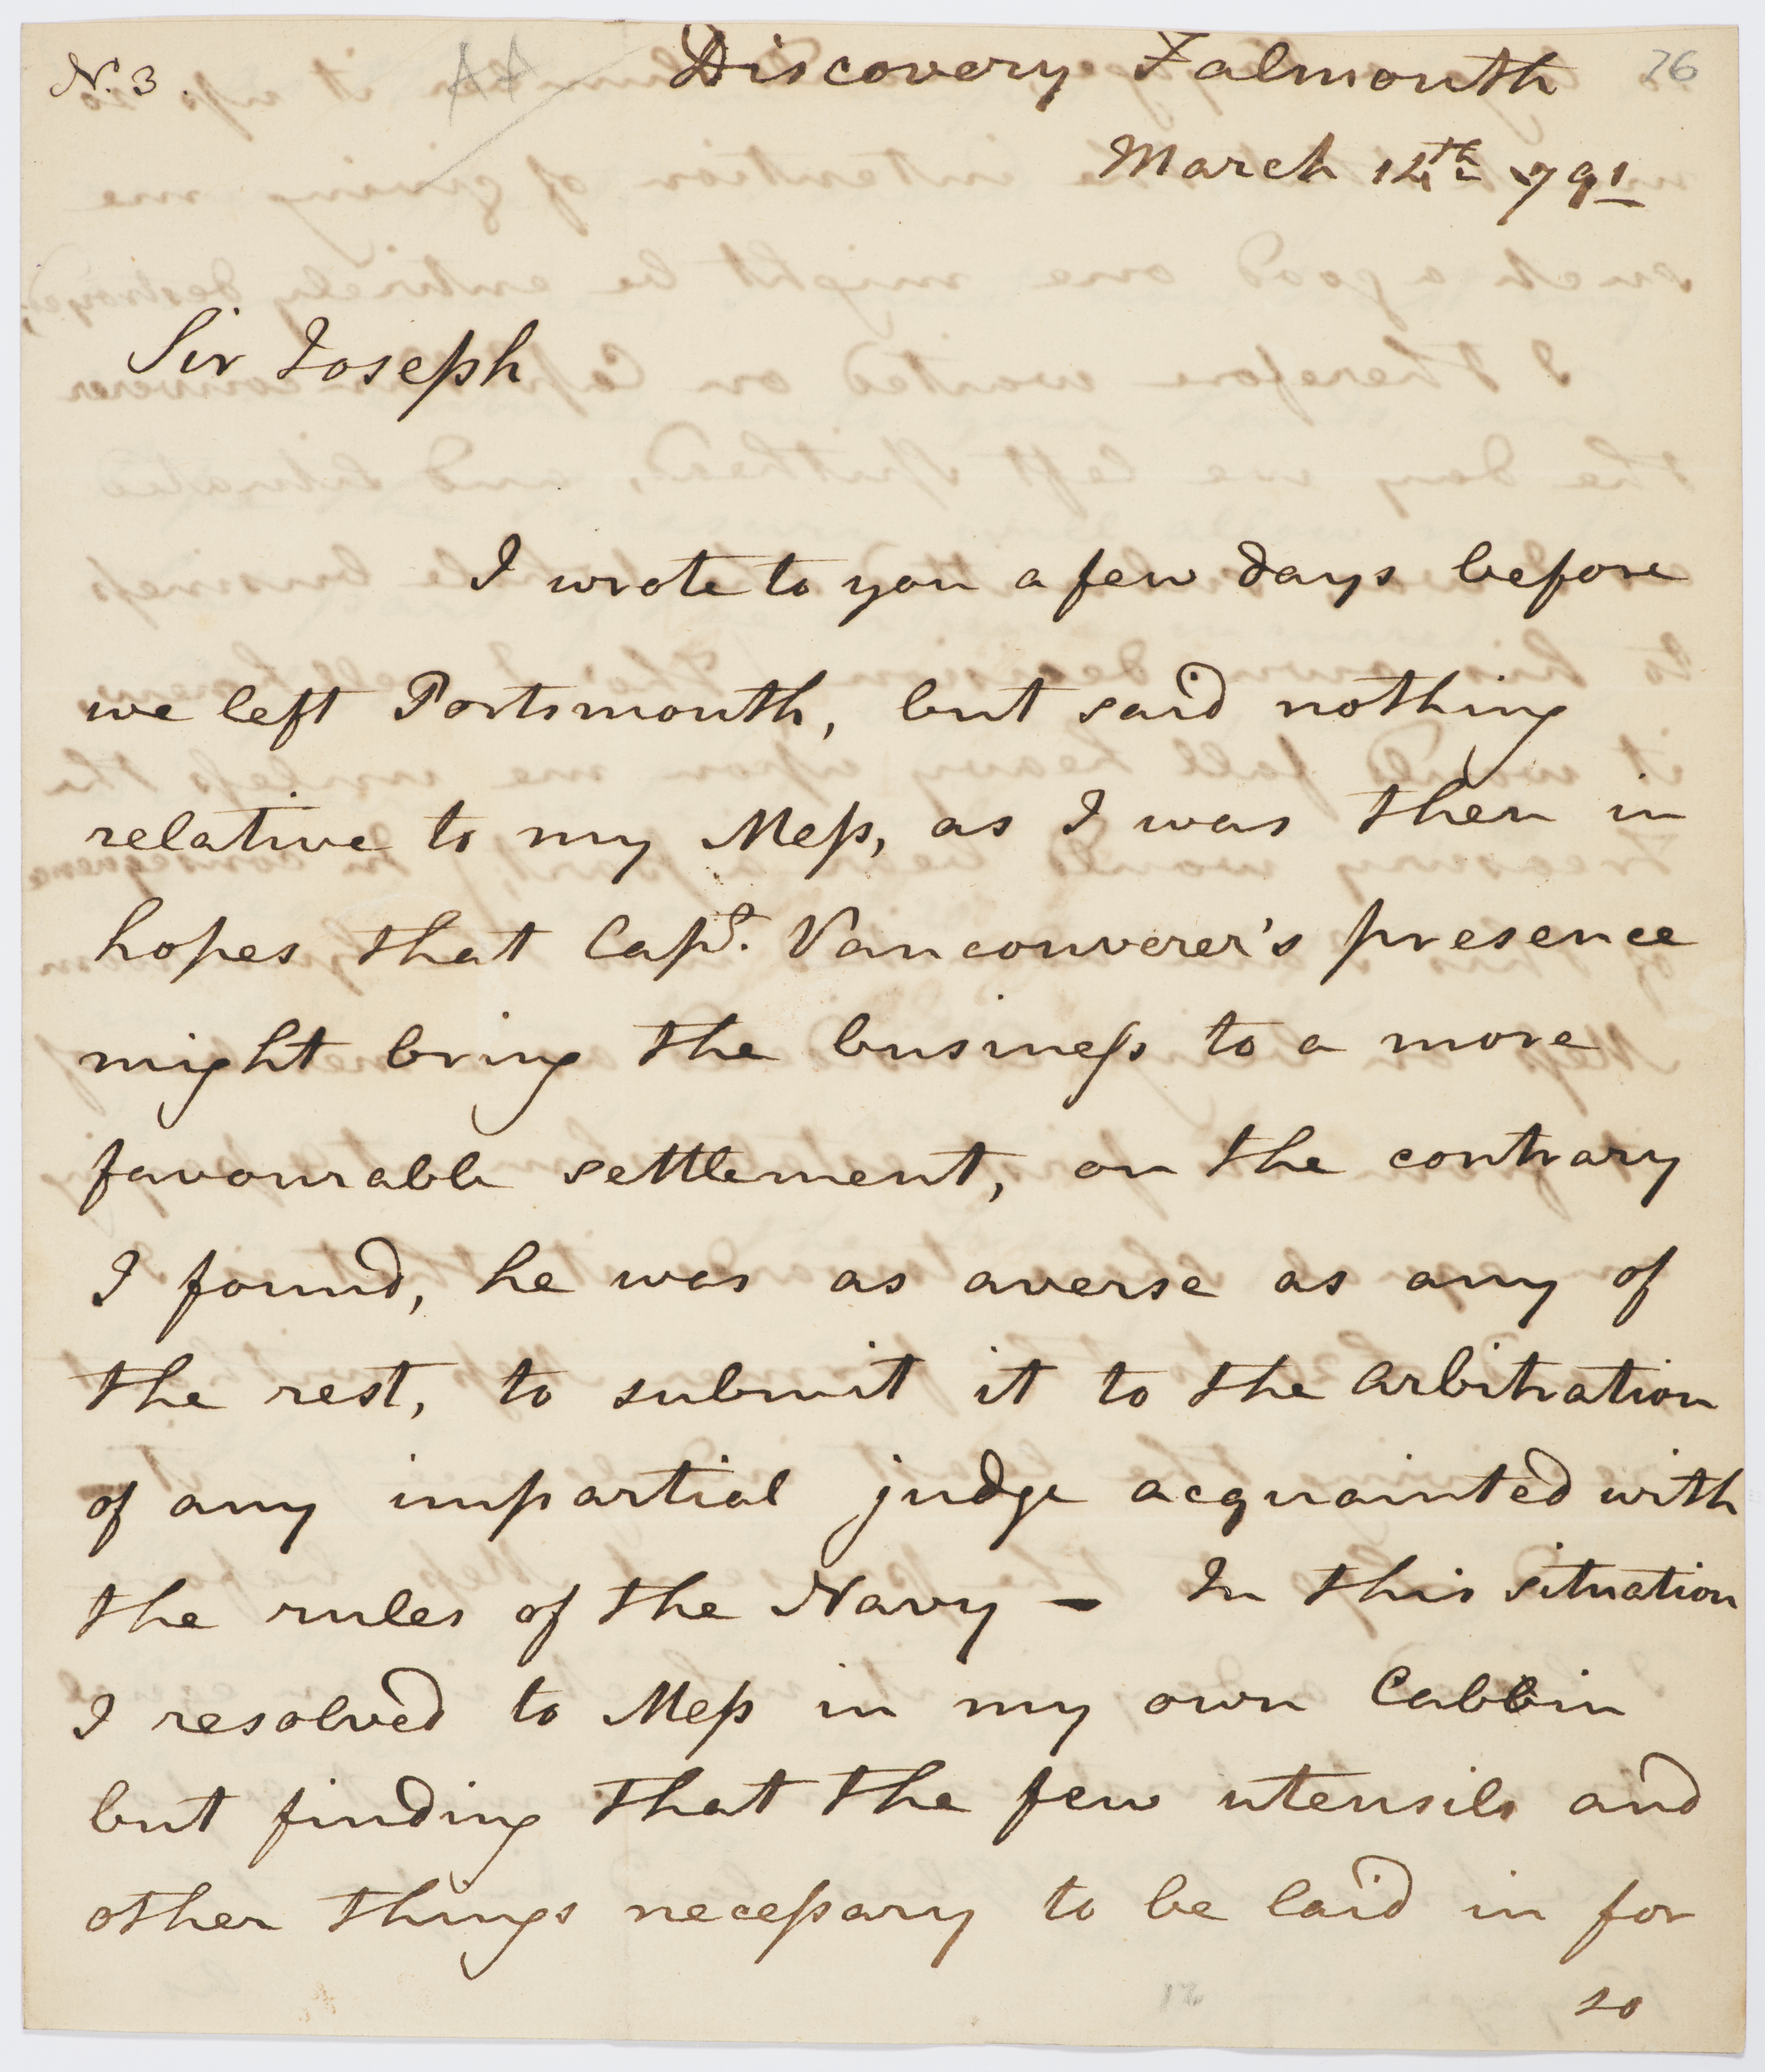 N. 3.
Discovery Falmouth
76
March 12th 791
Sir Joseph
I wrote to you a few days before
we left Portsmouth, but said nothing
relative to my Mess, as I was then in
hopes that Capt. Vancouverer's presence
might bring the business to a more
favourable settlement, on the contrary
I found, he was as averse as any of
the rest, to submit it to the arbitration
of any impartial judge acquainted with
the rules of the Navy - In this situation
I resolved to Mess in my own Cabbin
but finding that the few utensils and
other things necessary to be laid in for
so